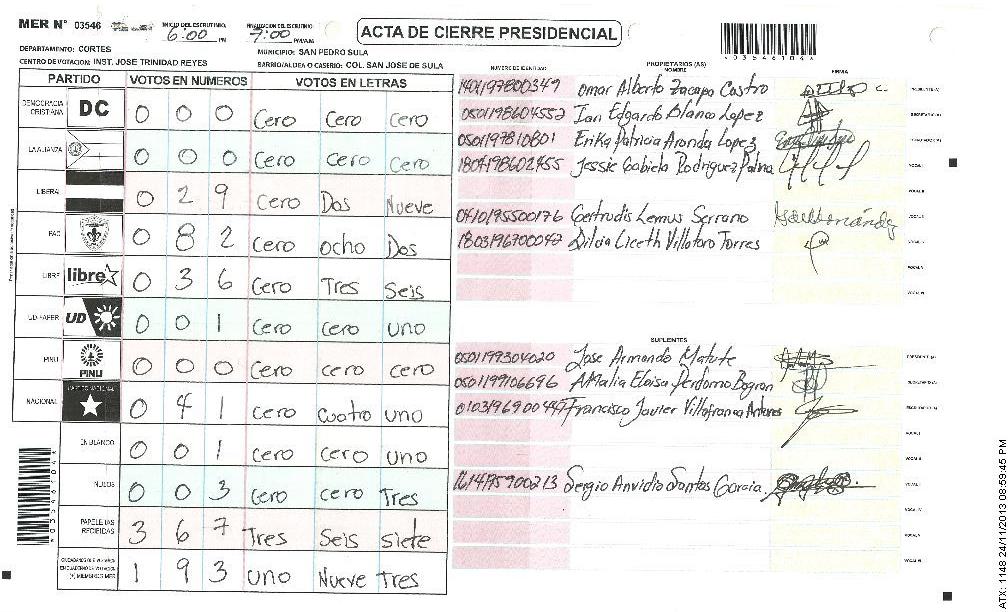 MER N° 03546 INICIO DEL ESCRUTINIO. 6:00 PM FINALIZACION DEL ESCRUTINIO 7:00 PM/AM.
ACTA DE CIERRE PRESIDENCIAL
*03546104*
DEPARTAMENTO: CORTES MUNICIPIO: SAN PEDRO SULA
CENTRO DE VOTACION: INST. JOSE TRINIDAD REYES BARRIO/ALDEA O CASERIO: COL. SAN JOSE DE SULA
PARTIDO VOTOS EN NUMEROS VOTOS EN LETRAS
DEMOCRACIA CRISTIANA DC 0 0 0 Cero Cero Cero
LA ALIANZA 0 0 0 Cero Cero Cero
LIBERAL 0 2 9 Cero Dos Nueve
PAC 0 8 2 Cero ocho Dos
LIBRE libre 0 3 6 Cero Tres Seis
UD FAPER UD 0 0 1 Cero cero uno
PINU PINU 0 0 0 Cero cero cero
NACIONAL PARTIDO NACIONAL 0 4 1 cero cuatro uno
EN BLANCO 0 0 1 cero cero uno
NULOS 0 0 3 cero cero Tres
PAPELETAS RECIBIDAS 3 6 7 Tres Seis siete
CIUDADANOS QUE VOTARON EN CUADERNO DE VOTACION (+) MIEMBROS MER 1 9 3 uno Nueve Tres
*03546104*
PROPIETARIOS (AS)
NUMERO DE IDENTIDAD NOMBRE FIRMA
1401197800349 Omar Alberto Zacapa Castro
0501198604552 Ian Edgardo Blanco Lopez
0501197810801 Erika Patricia Aranda Lopez
1804198602455 Jessie Gabiela Rodriguez Palma VOCAL I
VOCAL II
0410195500176 Gertrudis Lemus Serrano
1803196700042 Dilvia Liceth Villatoro Torres
VOCAL V
SUPLENTES
0501199304020 Jose Armando Matute PRESIDENTE (A)
0501199106696 AMalia Eloisa Perdomo Bogran SECRETARIO (A)
0103196900447 Francisco Javier Villafranca Antunes ESCRUTADOR (A)
VOCAL I
VOCAL II
1614195900213 Sergio Anvidio Santos Garcia
VOCAL IV
VOCAL V
VOCAL VI
ATX: 1148 24/11/2013 08:59:45 PM